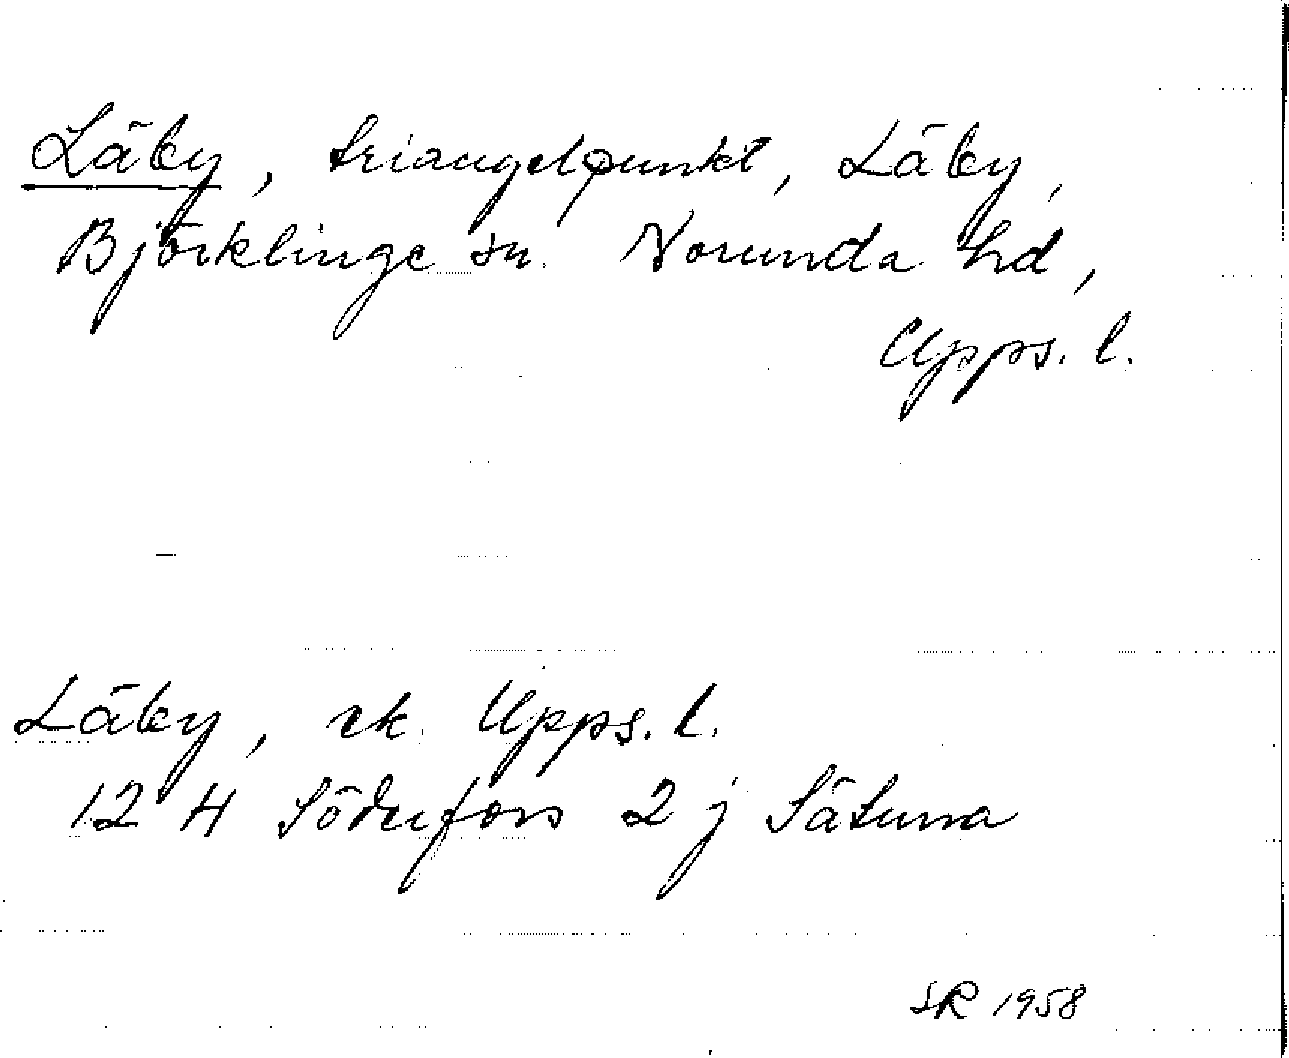 Läby, triangelpunkt, Läby,
Björklinge sn. Norunda hd,
Upps. l.
Läby, rk. Upps. l.
12 H Söderfors 2 j Sätuna
SR 1958